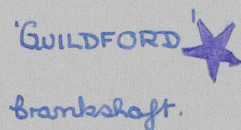 'GUILDFORD'
Crankshaft.